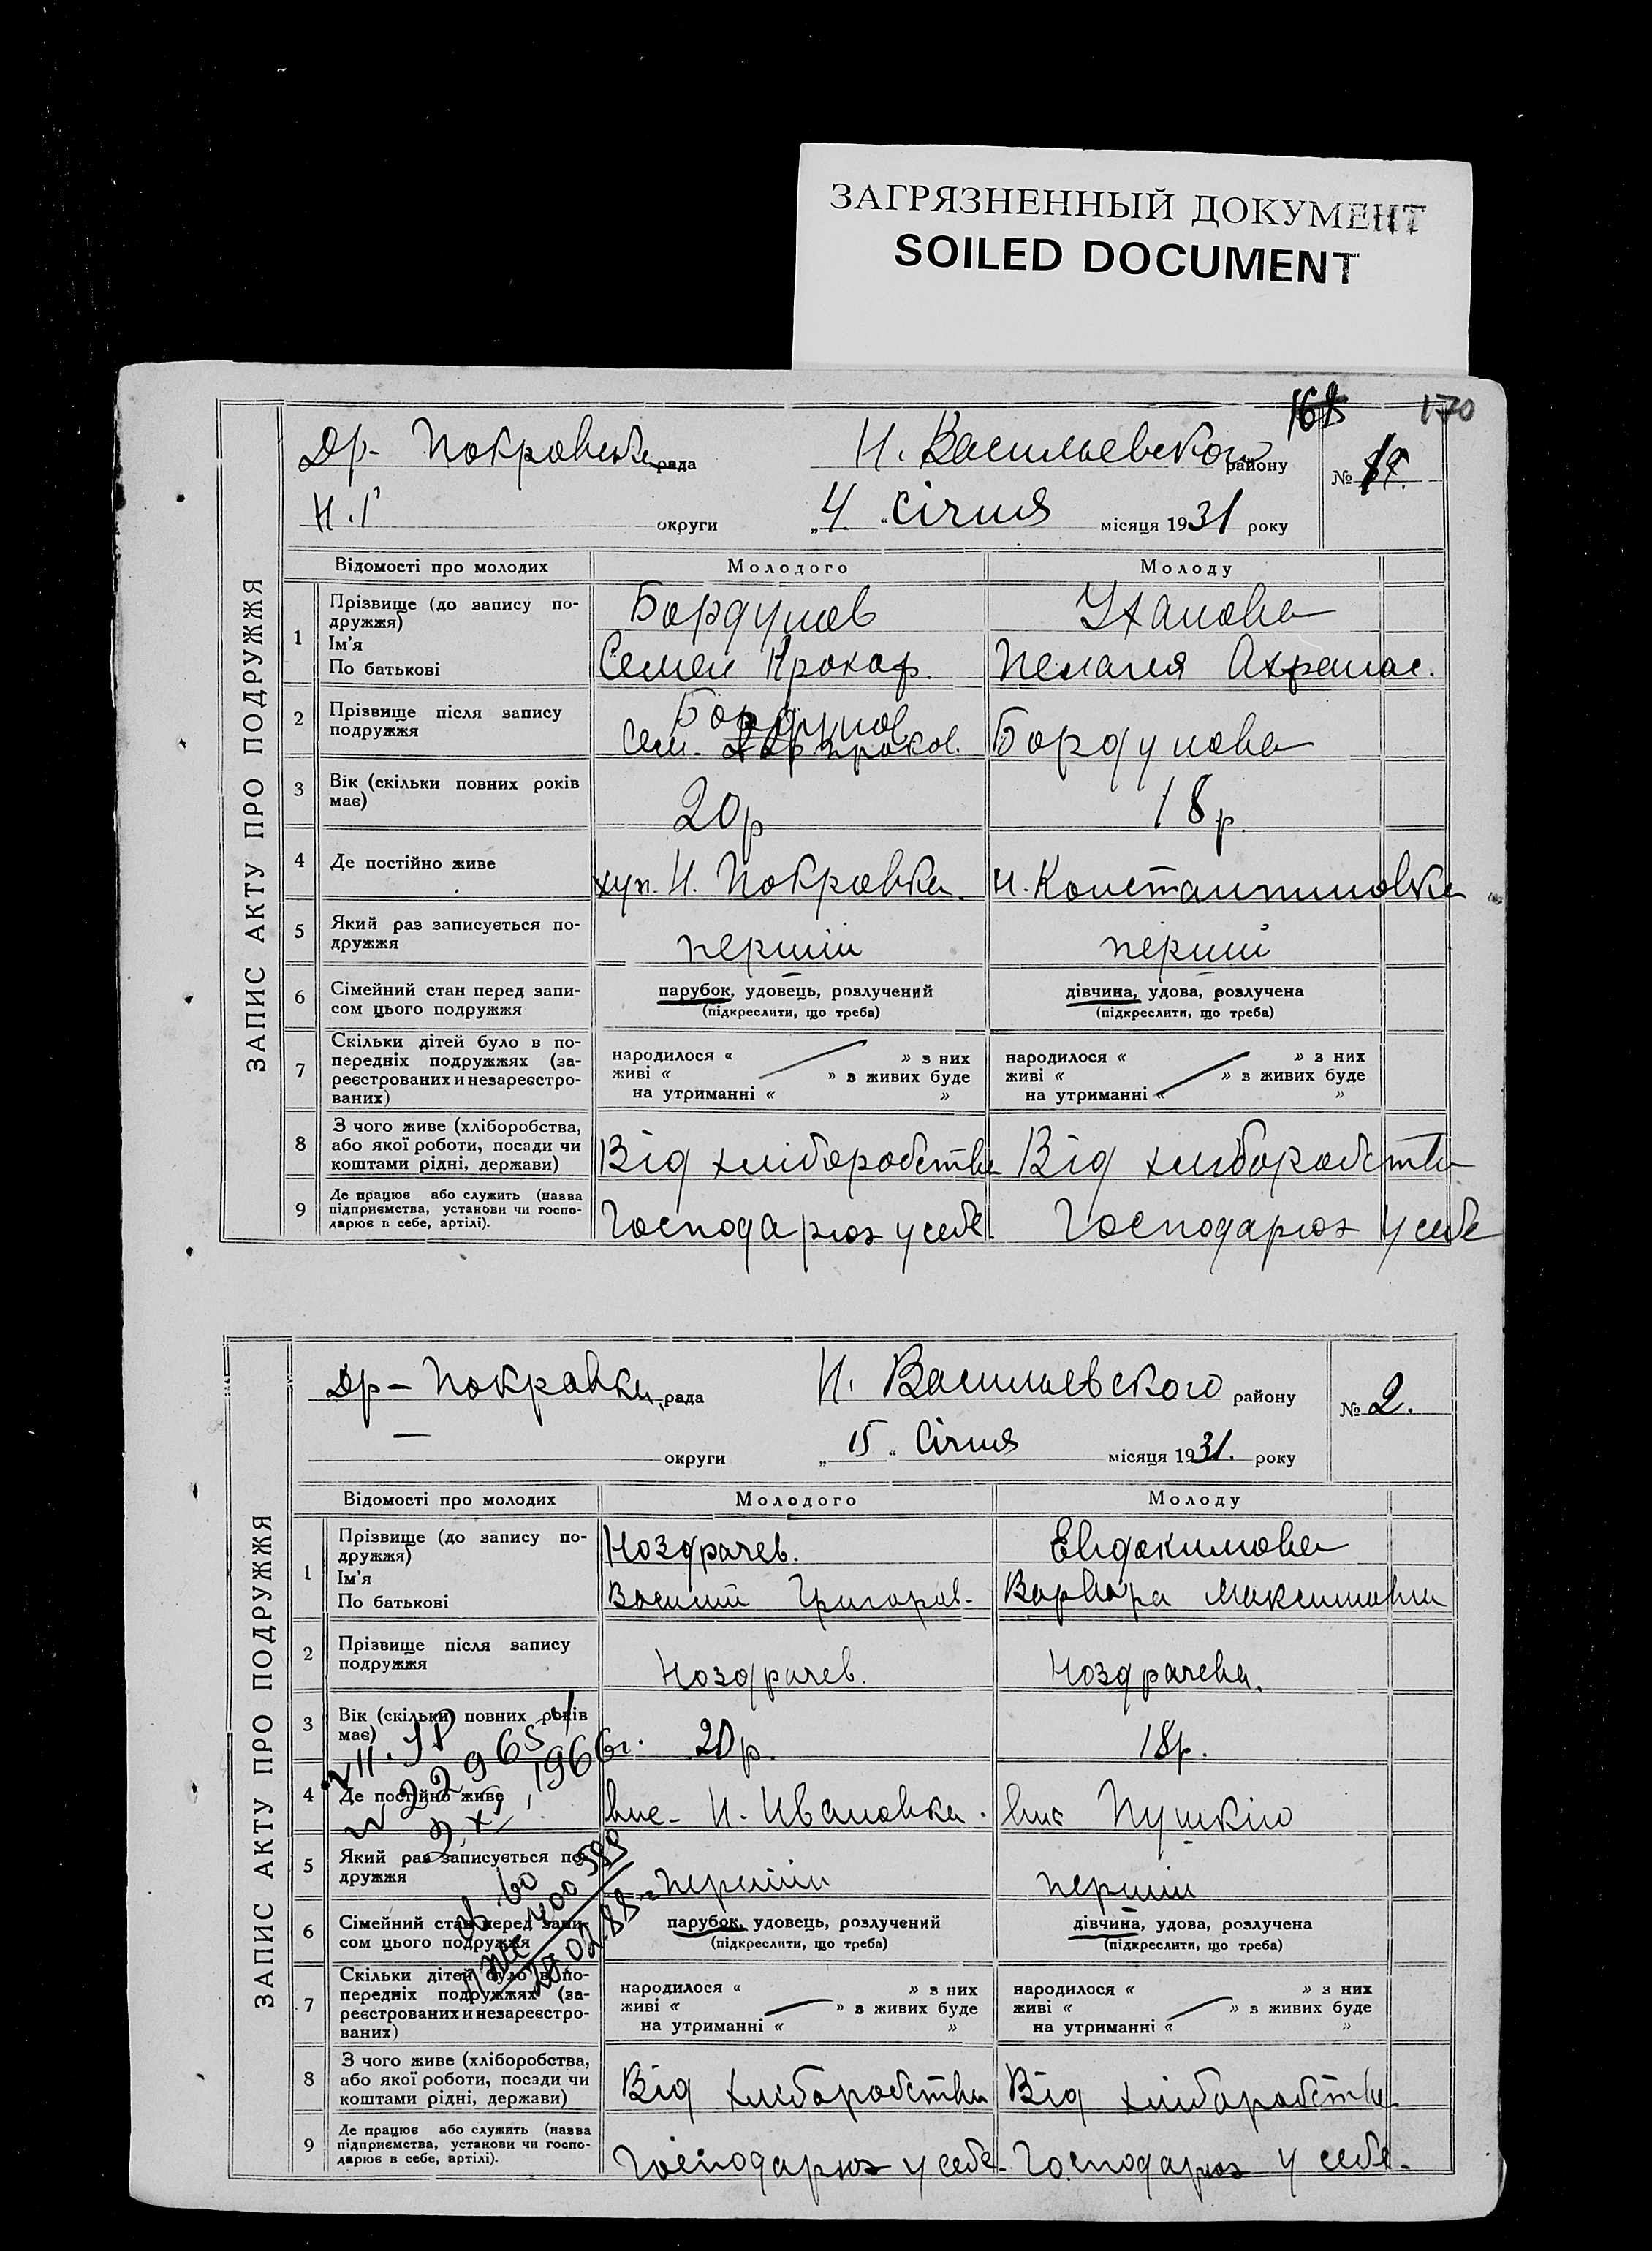 ЗАГРЯЗНЕННЫЙ ДОКУМЕНТ
SOILED DOCUMENT
170
Др- Покровська рада Н. Васильевского району №
Н.Г округи „4“ Січня місяця 1931 року
ЗАПИС АКТУ ПРО ПОДРУЖЖЯ
Відомості про молодих Молодого Молоду
1 Прізвище (до запису по-
дружжя) Бордунов Уханова
Ім'я
По батькові Семен Прокоф. Пелагея Ахренас.
2 Прізвище після запису
подружжя Бордунов
Сем. Проков. Бордунова
3 Вік (скільки повних років
має) 20р 18р.
4 Де постійно живе хут. Н. Покровка. Н. Константиновка
5 Який раз записується по-
дружжя перший перший
6 Сімейний стан перед запи-
сом цього подружжя
парубок, удовець, розлучений дівчина, удова, розлучена
(підкреслити, що треба) (підкреслити, що треба)
7 Скільки дітей було в по-
передніх подружжях (за-
реєстрованих и незареєстро-
ваних)
народилося « » з них народилося « » з них
живі « » з живих буде живі « » з живих буде
на утриманні « » на утриманні « »
8 З чого живе (хліборобства,
або якої роботи, посади чи
коштами рідні, держави) Від хліборобства Від хліборобства
9 Де працює або служить (назва
підприємства, установи чи госпо-
дарює в себе, артілі). Господарює у себе. Господарює у себе
Др- Покровка рада Н. Васильевского району № 2.
— округи „15“ Січня місяця 1931. року
ЗАПИС АКТУ ПРО ПОДРУЖЖЯ
Відомості про молодих Молодого Молоду
1 Прізвище (до запису по-
дружжя) Ноздрачев. Евдокимова
Ім'я
По батькові Василий Григоров. Варвара Максимовна
2 Прізвище після запису
подружжя Ноздрачев. Ноздрачева.
3 Вік (скільки повних років
має) 20р. 18р.
4 Де постійно живе вис- Н. Ивановка. вис Пушкіно
5 Який раз записується по-
дружжя перший перший
6 Сімейний стан перед запи-
сом цього подружжя
парубок, удовець, розлучений дівчина, удова, розлучена
(підкреслити, що треба) (підкреслити, що треба)
7 Скільки дітей було в по-
передніх подружжях (за-
реєстрованих и незареєстро-
ваних)
народилося « » з них народилося « » з них
живі « » з живих буде живі « » з живих буде
на утриманні « » на утриманні « »
8 З чого живе (хліборобства,
або якої роботи, посади чи
коштами рідні, держави) Від хліборобства Від хліборобства
9 Де працює або служить (назва
підприємства, установи чи госпо-
дарює в себе, артілі). Господарює у себе. Господарює у себе.